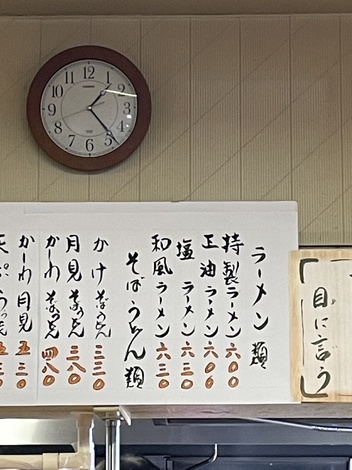 12
1
2
3
4
5
6
7
8
9
10
11
ラーメン類
特製ラーメン 六〇〇
正油ラーメン 六〇〇
塩ラーメン 六三〇
和風ラーメン 六三〇
そば うどん類
かけ そばうどん 三三〇
月見 そばうどん 三八〇
かーわ そばうどん 四八〇
かーわ月見 五三〇
「目に言う